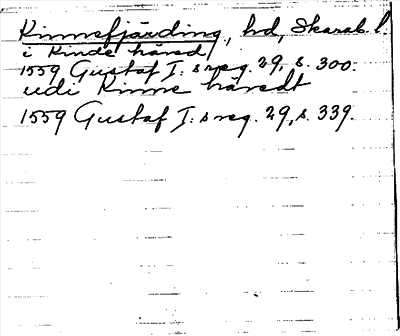 Kinnefjärding, hd, Skarab. l.
i Kinde härad
1559 Gustaf I:s reg. 29, s. 300.
udi Kinne häredt
1559 Gustaf I:s reg. 29, s. 339.